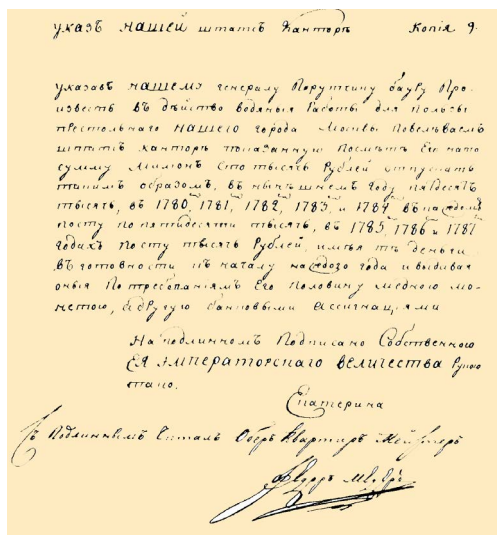 указъ нашей штатсъ Канторѣ Копiя 9.
указавъ нашему генералу Порутчику бауру Про:
известь въ дѣйство водяныя Работы для пользы
престольнаго нашего города Москвы Повелѣваемъ
штатсъ канторѣ показанную Посмѣтѣ Ево на то
сумму милионъ сто тысячь Рублей отпускать
такимъ образомъ, въ нынѣшнемъ году пядесятъ
тысячь, въ 1780, 1781, 1782, 1783, и 1784, въ каждомъ
посту по пятидесяти тысячь, въ 1785, 1786 и 1787
годахъ Посту тысячь Рублей, имѣя тѣ деньги
въ готовности къ началу каждого года и выдавая
оныя По требованiямъ Его половину медною мо-
нетою, а другую банковыми ассигнацiями
На подлинномъ Подписано Собственною
ЕЯ императорскаго величества Рукою
тако.
Екатерина
Съ Подлиннымъ Читалъ Оберъ Квартирь Мейстеръ
Федоръ